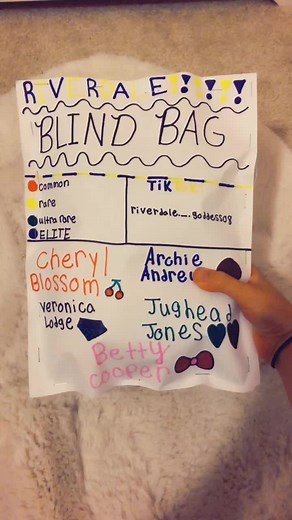 R V R A E !!!!
BLIND BAG
common
rare
ultra rare
ELITE
TiK
riverdale._.goddess08
Cheryl
Blossom
Archie
Andrew
Veronica
Lodge
Jughead
Jones
Betty
Cooper